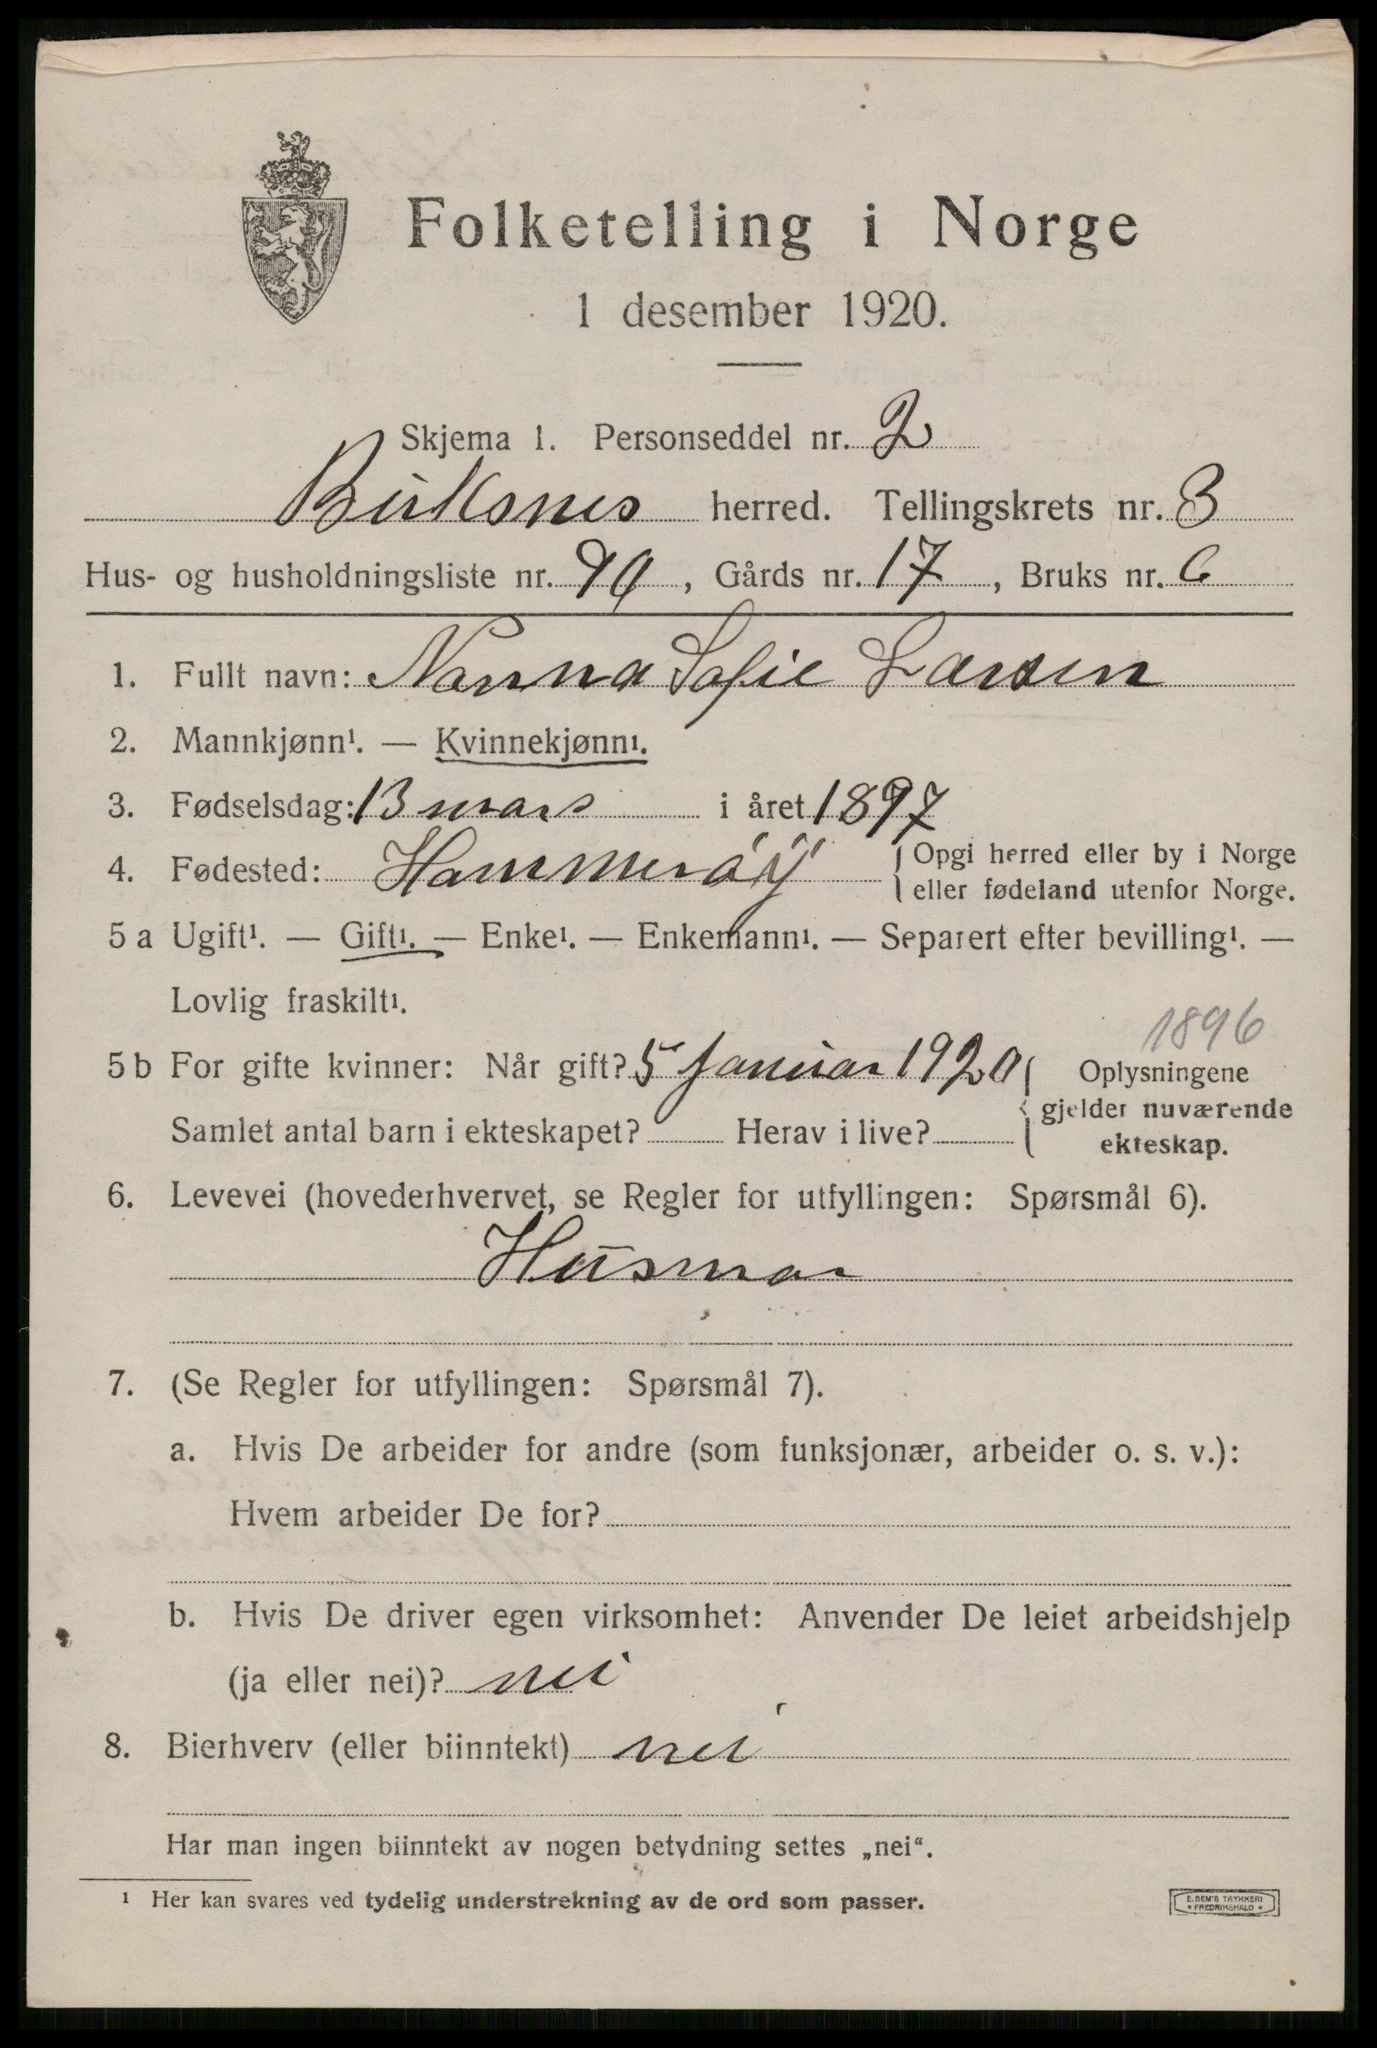 Folketelling i Norge
1 desember 1920.
Skjema 1. Personseddel nr. 2
Birksnes herred. Tellingskrets nr. 3
Hus- og husholdningsliste nr. 90, Gårds nr. 17, Bruks nr. 6
1. Fullt navn: Nanna Sofie Larsen
2. Mannkjønn¹. — Kvinnekjønn¹.
3. Fødselsdag: 13 mars i året 1897
4. Fødested: Hammerøy { Opgi herred eller by i Norge
eller fødeland utenfor Norge.
5 a Ugift¹. — Gift¹. — Enke¹. — Enkemann¹. — Separert efter bevilling¹. —
Lovlig fraskilt¹.
1896
5 b For gifte kvinner: Når gift? 5 Januar 1920 { Oplysningene
gjelder nuværende
Samlet antal barn i ekteskapet? Herav i live?
ekteskap.
6. Levevei (hovederhvervet, se Regler for utfyllingen: Spørsmål 6).
Husmor
7. (Se Regler for utfyllingen: Spørsmål 7).
a. Hvis De arbeider for andre (som funksjonær, arbeider o. s. v.):
Hvem arbeider De for?
b. Hvis De driver egen virksomhet: Anvender De leiet arbeidshjelp
(ja eller nei)? nei
8. Bierhverv (eller biinntekt) nei
Har man ingen biinntekt av nogen betydning settes „nei“.
¹ Her kan svares ved tydelig understrekning av de ord som passer.
E. SEM'S TRYKKERI
• FREDRIKSHALD •